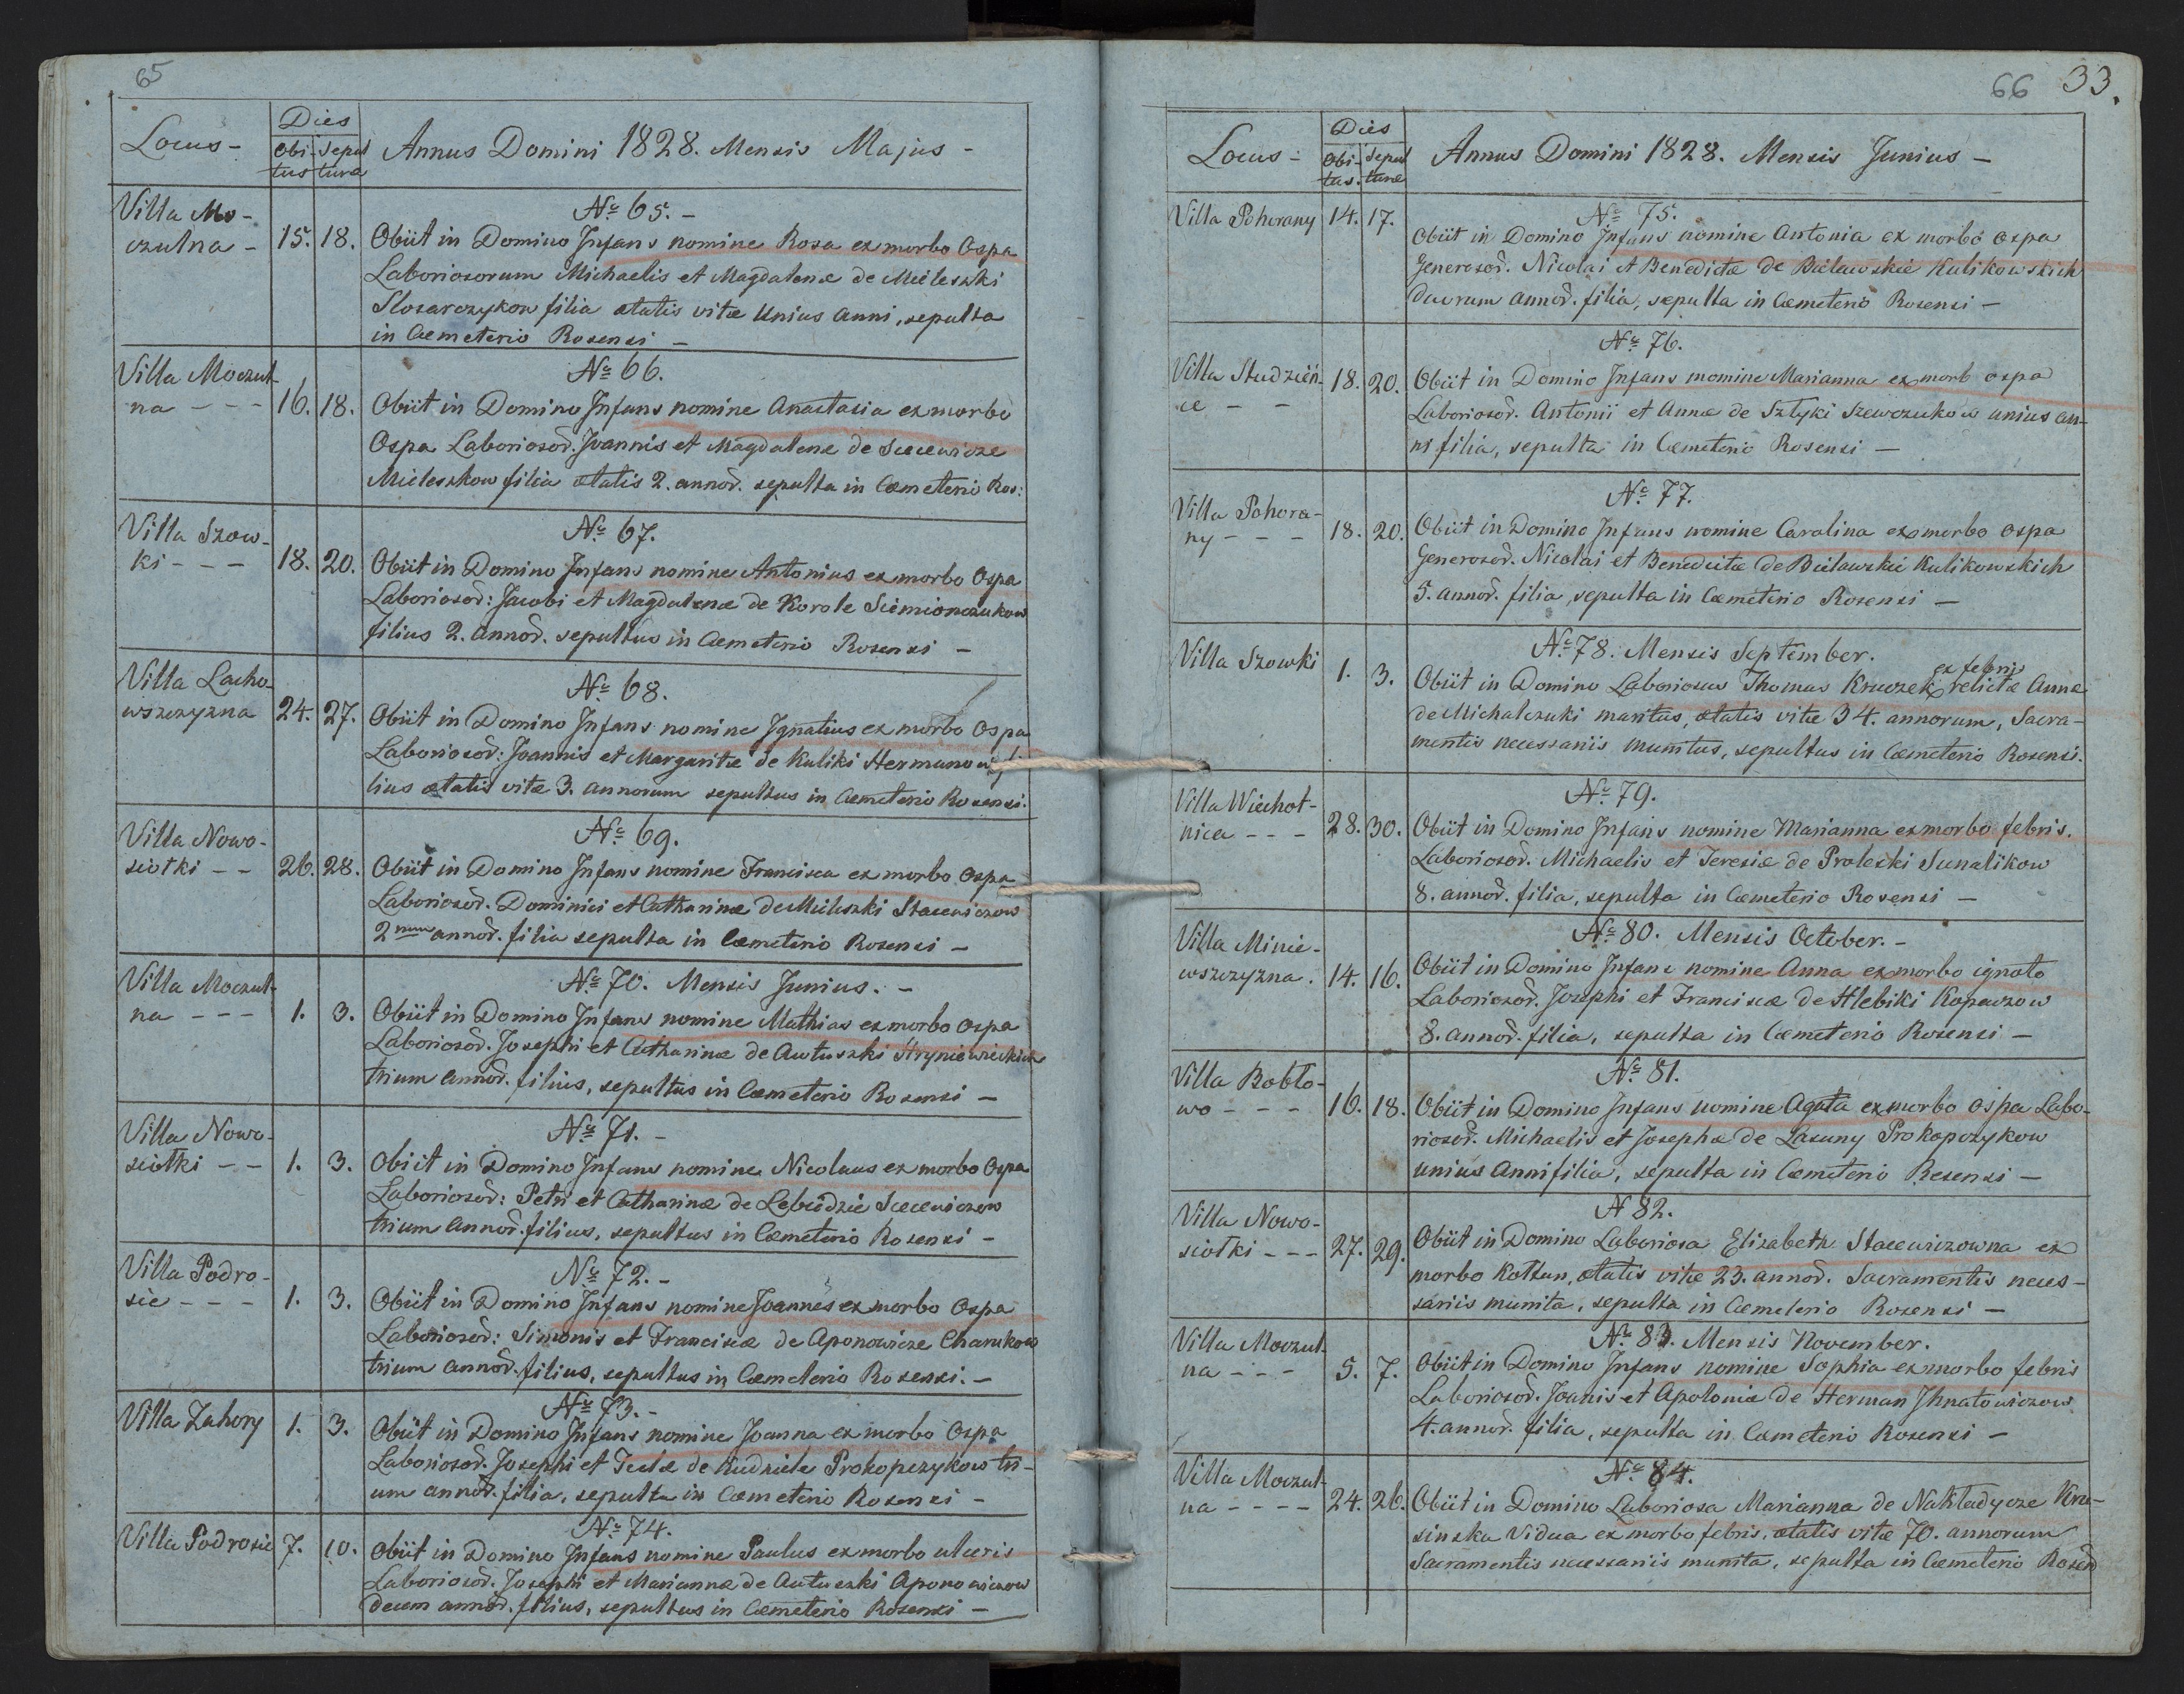 65
Locus - Dies Annus Domini 1828. Mensis Majus -
Obi- Sepul
tus tura
Villa Mo-
czulna - 15. 18.
No 65. -
Obiit in Domino Infans nomine Rosa ex morbo Ospa
Laboriosorum Michaelis et Magdalenæ de Mieleszki
Slosarczykow filia ætatis vitæ Unius Anni, sepulta
in Cæmeterio Rosensi -
Villa Moczul-
na - - - 16. 18.
No 66.
Obiit in Domino Infans nomine Anastasia ex morbo
Ospa Laboriosor. Joannis et Magdalenæ de
Mieleszkow filia ætatis 2. annor. sepulta in Cæmeterio Ros:
Villa Szow-
ki - - - 18. 20.
No 67.
Obiit in Domino Infans nomine Antonius ex morbo Ospa
Laboriosor: Jacobi et Magdalenæ de Korole Siemionczukow
filius 2. annor. sepultus in Cæmeterio Rosensi -
Villa Lacho-
wszczyzna 24. 27.
No 68.
Obiit in Domino Infans nomine Ignatius ex morbo Ospa
Laboriosor: Joannis et Margaritæ de Kuliki Hermanow fi
lius ætatis vitæ 3. annorum sepultus in Cæmeterio Rosensi.
Villa Nowo-
siołki - - 26. 28.
No 69.
Obiit in Domino Infans nomine Francisca ex morbo Ospa
Laboriosor. Dominici et Catharinæ de Mieleszki Stacewiczow
2num annor. filia sepulta in Cæmeterio Rosensi -
Villa Moczul-
na - - - 1. 3.
No 70. Mensis Junius. -
Obiit in Domino Infans nomine Mathias ex morbo Ospa
Laboriosor. Josephi et Catharinæ de Awtuszki Hryniewickich
trium annor. filius, sepultus in Cæmeterio Rosensi -
Villa Nowo-
siołki - - 1. 3.
No 71. -
Obiit in Domino Infans nomine Nicolaus ex morbo Ospa
Laboriosor: Petri et Catharinæ de Lebiedzie
trium Annor. filius, sepultus in Cæmeterio Rosensi -
Villa Podro-
sie - - - 1. 3.
No 72. -
Obiit in Domino Infans nomine Joannes ex morbo Ospa
Laboriosor: Simonis et Franciscæ de Aponowicze
trium annor. filius, sepultus in Cæmeterio Rosensi. -
Villa Zahory 1. 3.
No 73. -
Obiit in Domino Infans nomine Joanna ex morbo Ospa
Laboriosor. Josephi et Teclæ de Prokopczykow tri-
um annor. filia, sepulta in Cæmeterio Rosensi -
Villa Podrosie 7. 10.
No 74.
Obiit in Domino Infans nomine Paulus ex morbo ulceris
Laboriosor. Josephi et Mariannæ de Autuszki Aponowiczow
decem annor. filius, sepultus in Cæmeterio Rosensi -
66 33.
Locus - Dies Annus Domini 1828. Mensis Junius -
Obi- Sepul
tus. turæ
Villa Pohorany 14. 17.
No 75.
Obiit in Domino Infans nomine Antonia ex morbo ospa
Generosor. Nicolai et Benedictæ de Bielawskie Kulikowskich
duorum annor. filia, sepulta in Cæmeterio Rosensi -
Villa Studzień-
ce - - 18. 20.
No 76.
Obiit in Domino Infans nomine Marianna ex morb ospa
Laboriosor. Antonii et Annæ de Sztyki Szewczukow unius an-
ni filia, sepulta in Cæmeterio Rosensi -
Villa Pohora-
ny - - - 18. 20.
No 77.
Obiit in Domino Infans nomine Carolina ex morbo ospa
Generosor. Nicolai et Benedictæ de Bielawskie Kulikowskich
5. annor. filia, sepulta in Cæmeterio Rosensi -
Villa Szowki 1. 3.
No 78. Mensis September.
ex febris
Obiit in Domino Laboriosus Thomas Kruczek relictæ Annæ
de Michalczuki maritus, ætatis vitæ 34. annorum, Sacra-
mentis necessariis munitus, sepultus in Cæmeterio Rosensi.
Villa Wiechot-
nica - - - 28. 30.
No 79.
Obiit in Domino Infans nomine Marianna ex morbo febris.
Laboriosor. Michaelis et Teresiæ de Proleski Sunalikow
8. annor. filia, sepulta in Cæmeterio Rosensi -
Villa Minie-
wszczyzna. 14. 16.
No 80. Mensis October. -
Obiit in Domino Infans nomine Anna ex morbo ignoto
Laboriosor. Josephi et Franciscæ de Hlebiki Kopaczow
8. annor. filia, sepulta in Cæmeterio Rosensi -
Villa Bobło-
wo - - - 16. 18.
No 81.
Obiit in Domino Infans nomine Agata ex morbo ospa Labo-
riosor. Michaelis et Josephæ de Lasuny Prokopczykow
unius Anni filia, sepulta in Cæmeterio Resensi -
Villa Nowo-
siołki - - - 27. 29.
N 82.
Obiit in Domino Laboriosa Elizabeth Stacewiczowna ex
morbo Kołtun, ætatis vitæ 23. annor. Sacramentis neces-
sariis munita, sepulta in Cæmeterio Rosensi -
Villa Moczul-
na - - - 5. 7.
No 83. Mensis November.
Obiit in Domino Infans nomine Sophia ex morbo febris
Laboriosor. Joanis et Apoloniæ de Herman Ihnatowiczow
4. annor. filia, sepulta in Cæmeterio Rosensi -
Villa Moczul-
na - - - - 24. 26.
No 84.
Obiit in Domino Laboriosa Marianna de Nakładycze Kru-
sinska Vidua ex morbo febris, ætatis vitæ 70. annorum
Sacramentis necessariis munita, sepulta in Cæmeterio Rosen